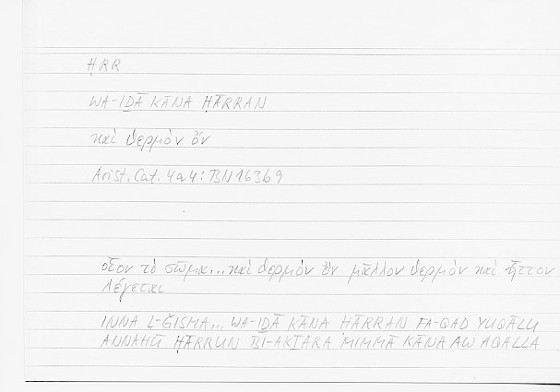 ḤRR
WA-IḎĀ KĀNA ḤĀRRAN
καὶ θερμὸν ὄν
Arist. Cat. 4a4: BN 163b9
οἷον τὸ σῶμα... καὶ θερμὸν ὂν μᾶλλον θερμὸν καὶ ἧττον
λέγεται
INNA L-ǦISMA... WA-IḎĀ KĀNA ḤĀRRAN FA-QAD YUQĀLU
ANNAHŪ ḤĀRRUN BI-AKṮARA MIMMĀ KĀNA AW AQALLA